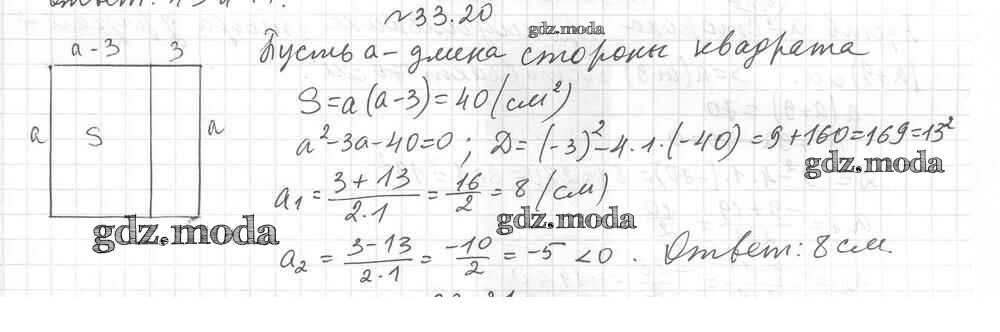 №33.20
gdz.moda
a-3 3
Пусть a - длина стороны квадрата
S=a(a-3)=40(см²)
a S a
a²-3a-40=0; D=(-3)²-4·1·(-40)=9+160=169=13²
gdz.moda
a₁=\frac{3+13}{2·1}=\frac{16}{2}=8(см)
gdz.moda
gdz.moda
a₂=\frac{3-13}{2·1}=\frac{-10}{2}=-5<0. Ответ: 8 см.